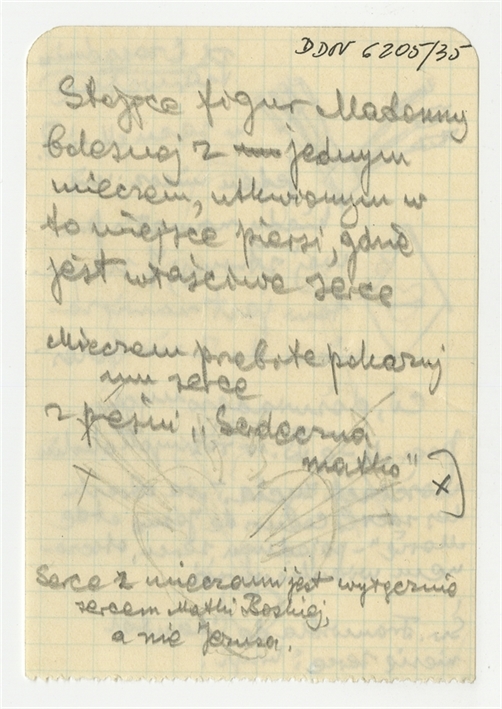 DDN 6205/35
Stojące figur Madonny
bolesnej z jednym
mieczem, utkwionym w
to miejsce piersi, gdzie
jest właściwe serce
Mieczem przebite pokazuj
nam serce
z pieśni „Serdeczna
matko"
x
Serce z mieczami jest wyłącznie
sercem Matki Boskiej,
a nie Jezusa.